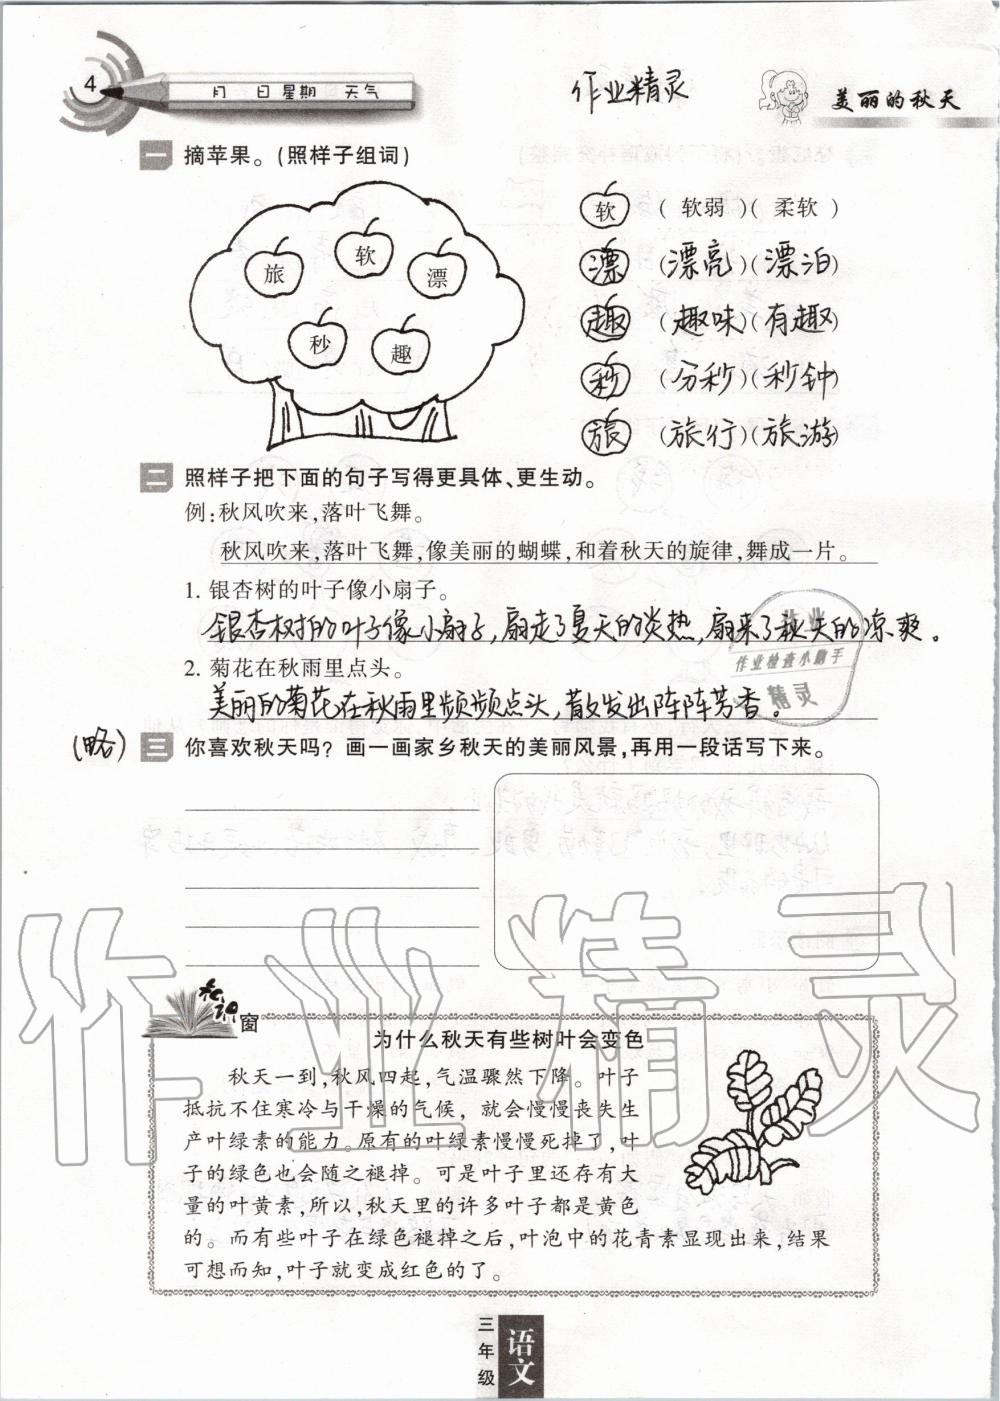 4
月 日 星期 天气
作业精灵
美丽的秋天
一 摘苹果。(照样子组词)
旅 软 漂
秒 趣
软 (软弱)(柔软)
漂 (漂亮)(漂泊)
趣 (趣味)(有趣)
秒 (分秒)(秒钟)
旅 (旅行)(旅游)
二 照样子把下面的句子写得更具体、更生动。
例:秋风吹来,落叶飞舞。
秋风吹来,落叶飞舞,像美丽的蝴蝶,和着秋天的旋律,舞成一片。
1. 银杏树的叶子像小扇子。
银杏树的叶子像小扇子,扇走了夏天的炎热,扇来了秋天的凉爽。
作业
作业检查小助手
精灵
2. 菊花在秋雨里点头。
美丽的菊花在秋雨里频频点头,散发出阵阵芳香。
(略) 三 你喜欢秋天吗? 画一画家乡秋天的美丽风景,再用一段话写下来。
作业精灵
知识窗
为什么秋天有些树叶会变色
秋天一到,秋风四起,气温骤然下降。叶子
抵抗不住寒冷与干燥的气候, 就会慢慢丧失生
产叶绿素的能力。原有的叶绿素慢慢死掉了,叶
子的绿色也会随之褪掉。可是叶子里还存有大
量的叶黄素,所以,秋天里的许多叶子都是黄色
的。而有些叶子在绿色褪掉之后,叶泡中的花青素显现出来,结果
可想而知,叶子就变成红色的了。
三年级
语文